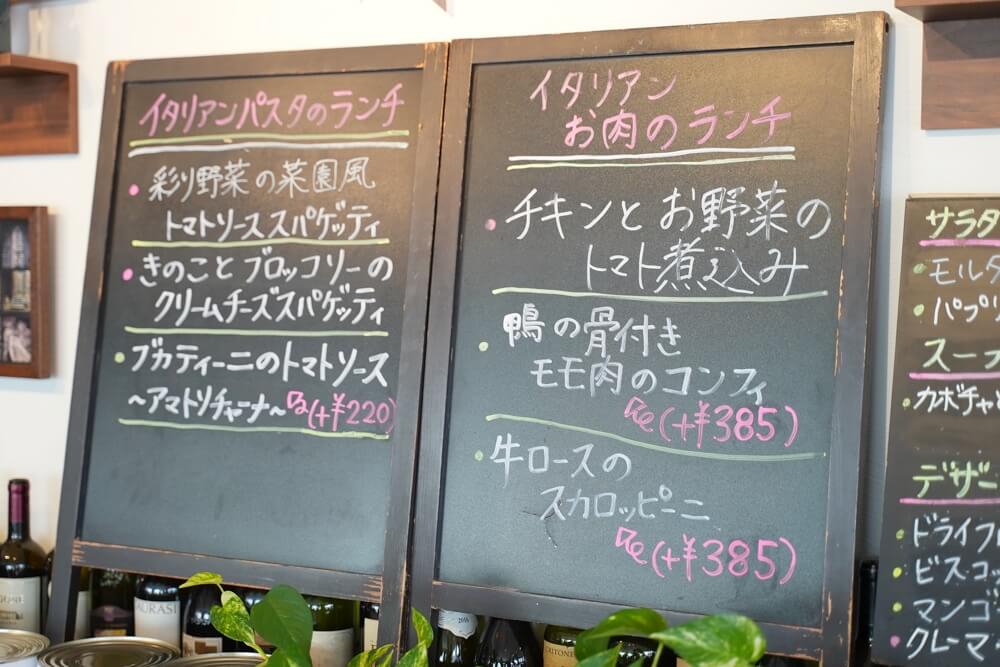 イタリアンパスタのランチ
彩り野菜の菜園風
トマトソーススパゲッティ
きのことブロッコリーの
クリームチーズスパゲッティ
ブカティーニのトマトソース
~アマトリチャーナ~ (+¥220)
イタリアン
お肉のランチ
チキンとお野菜の
トマト煮込み
鴨の骨付き
モモ肉のコンフィ
(+¥385)
牛ロースの
スカロッピーニ
(+¥385)
サラダ
モルタ
パプリ
スープ
カボチャと
デザー
ドライフル
ビスコッ
マンゴ
クレーマ